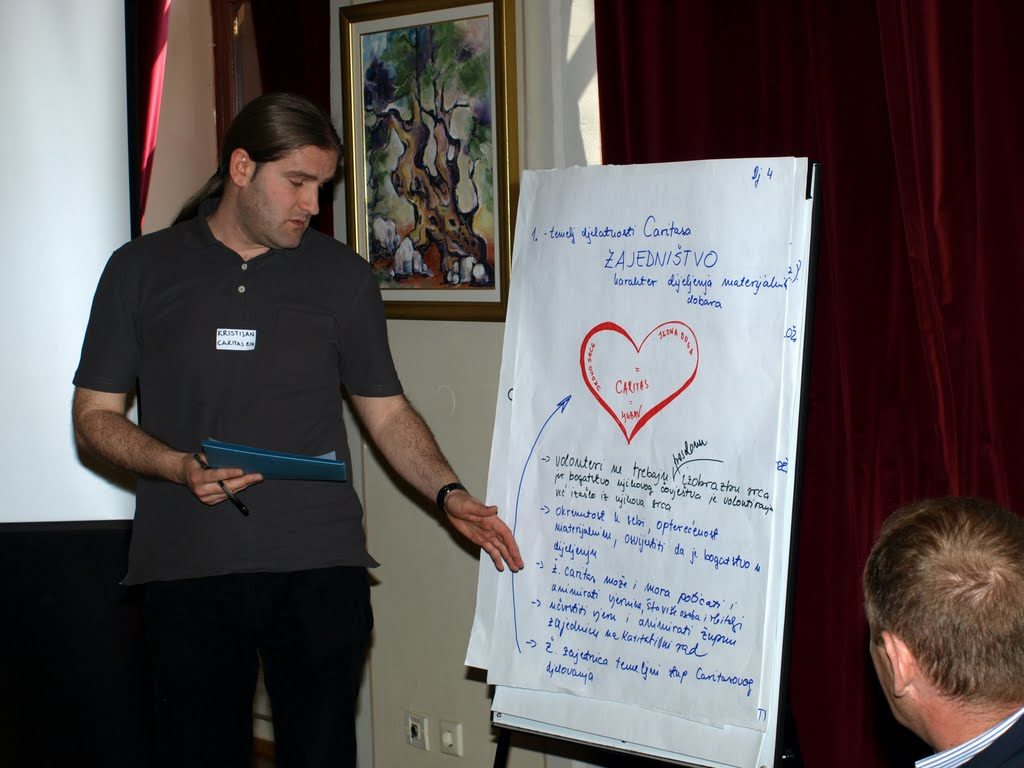 KRISTIJAN
CARITAS
Dj 4
1. - temelj djelatnosti Caritasa
ZAJEDNIŠTVO
karakter dijeljenja materijalnih
dobara
JEDNO SRCE
JEDNA DUŠA
=
CARITAS
=
LJUBAV
posebnu
→ volonteri ne trebaju izobrazbu srca
jer bogatstvo njihovog čovještva je volontiranje
već izašlo iz njihova srca
→ okrenutost k sebi, opterećenost
materijalnim, osvijestiti da je bogatstvo u
dijeljenju
→ ž. caritas može i mora poticati i
animirati vjernike,
→ učvrstiti vjeru i animirati župnu
zajednicu na karitativni rad
→ ž. zajednica temeljni stup Caritasovog
djelovanja